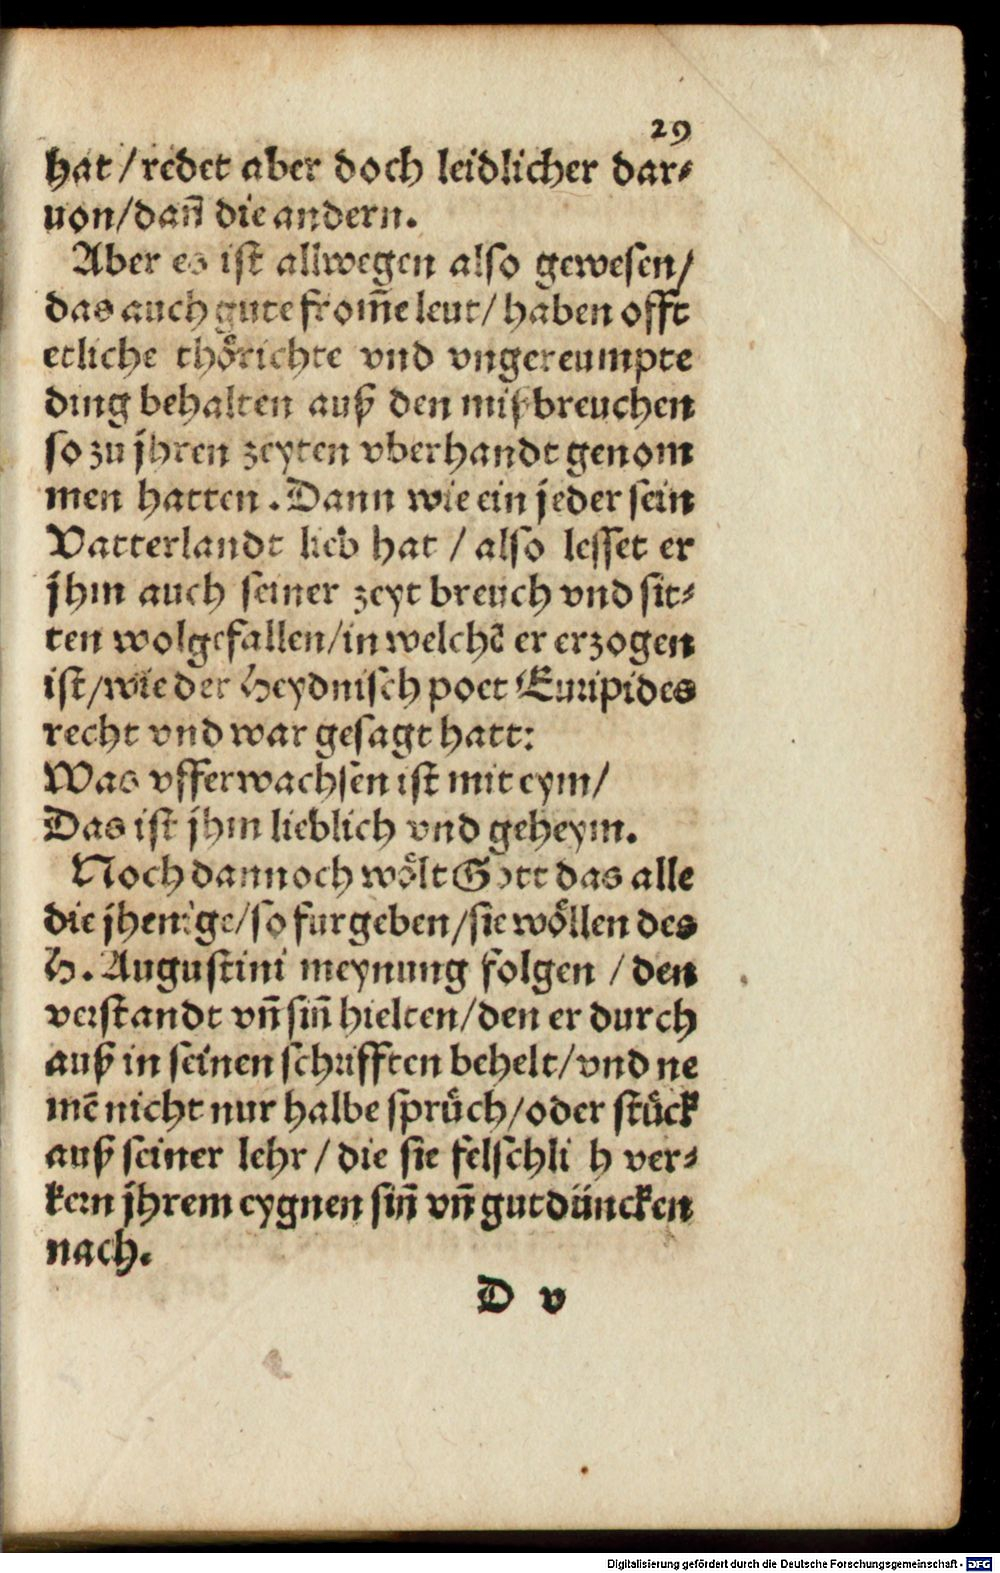 29
hat / redet aber doch leidlicher dar⸗
uon/dañ die andern.
Aber es ist allwegen also gewesen/
das auch gute from̃e leut/ haben offt
etliche thoͤrichte vnd vngereumpte
ding behalten auß den mißbreuchen
so zu jhren zeyten vberhandt genom
men hatten. Dann wie ein jeder sein
Vatterlandt lieb hat / also lesset er
jhm auch seiner zeyt breuch vnd sit⸗
ten wolgefallen/in welchẽ er erzogen
ist/wie der Heydnisch poet Euripides
recht vnd war gesagt hatt:
Was vfferwachsen ist mit eym/
Das ist jhm lieblich vnd geheym.
Noch dannoch woͤlt Gott das alle
die jhenige/so furgeben/sie woͤllen des
H. Augustini meynung folgen / den
verstandt vñ siñ hielten/den er durch
auß in seinen schrifften behelt/vnd ne
mẽ nicht nur halbe spruͤch/oder stuͤck
auß seiner lehr / die sie felschli h ver⸗
kern jhrem eygnen siñ vñ gutdüncken
nach.
D v
Digitalisierung gefördert durch die Deutsche Forschungsgemeinschaft - DFG